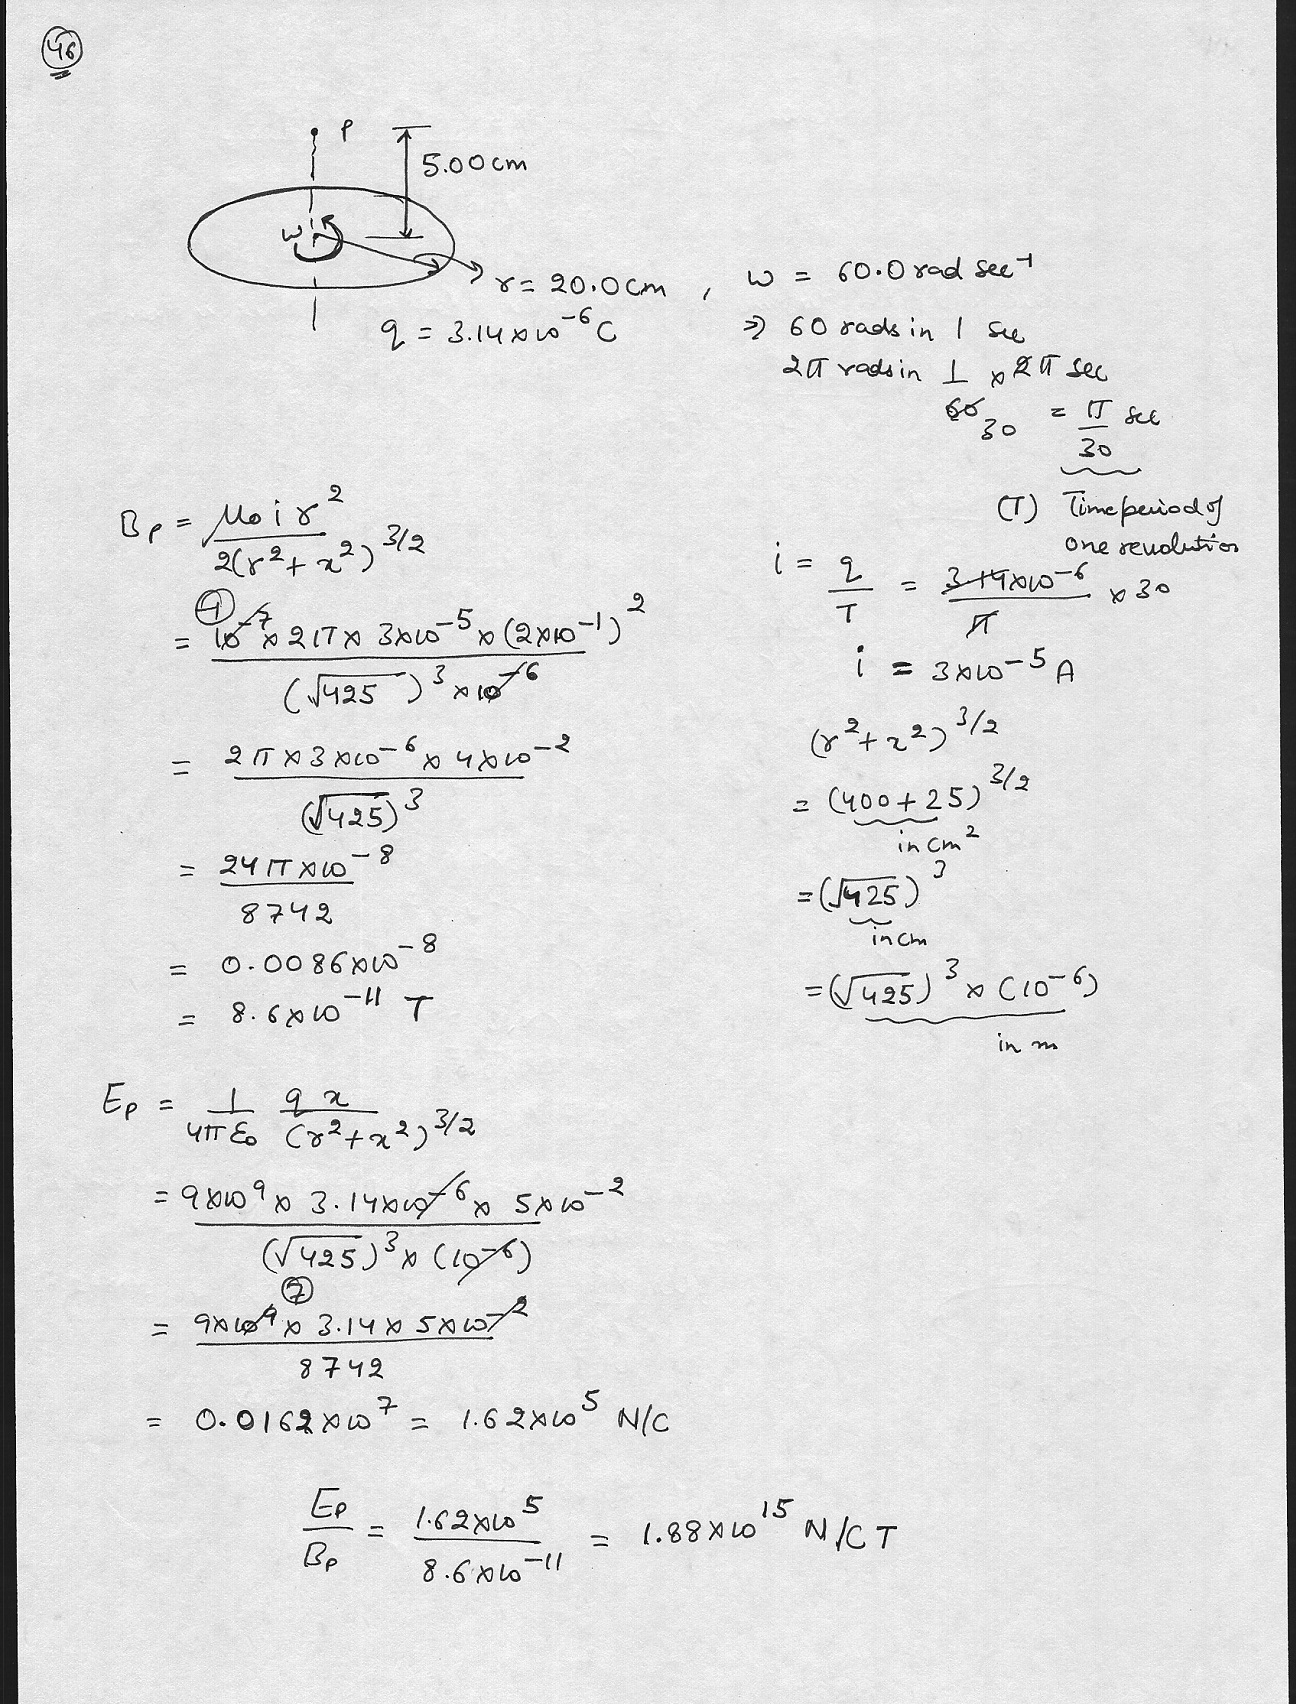 46
P
5.00cm
ω
r = 20.0cm , ω = 60.0 rad sec⁻¹
q = 3.14×10⁻⁶C
⇒ 60 rads in 1 sec
2π rads in 1/60 × 2π sec
30
= π/30 sec
(T) Time period of
one revolution
Bp = μ₀ i r² / 2(r² + x²)^3/2
= 10⁻⁷ × 2π × 3×10⁻⁵ × (2×10⁻¹)² / (√425)³ × 10⁻⁶
= 2π × 3×10⁻⁶ × 4×10⁻² / (√425)³
= 24π×10⁻⁸ / 8742
= 0.0086×10⁻⁸
= 8.6×10⁻¹¹ T
i = q/T = 3.14×10⁻⁶/π × 30
i = 3×10⁻⁵ A
(r² + x²)^3/2
= (400 + 25)^3/2
in cm²
= (√425)³
in cm
= (√425)³ × (10⁻⁶)
in m
Ep = 1/4πε₀ qx / (r² + x²)^3/2
= 9×10⁹ × 3.14×10⁻⁶ × 5×10⁻² / (√425)³ × (10⁻⁶)
7
= 9×10⁹ × 3.14 × 5×10⁻² / 8742
= 0.0162×10⁷ = 1.62×10⁵ N/C
Ep/Bp = 1.62×10⁵ / 8.6×10⁻¹¹ = 1.88×10¹⁵ N/CT